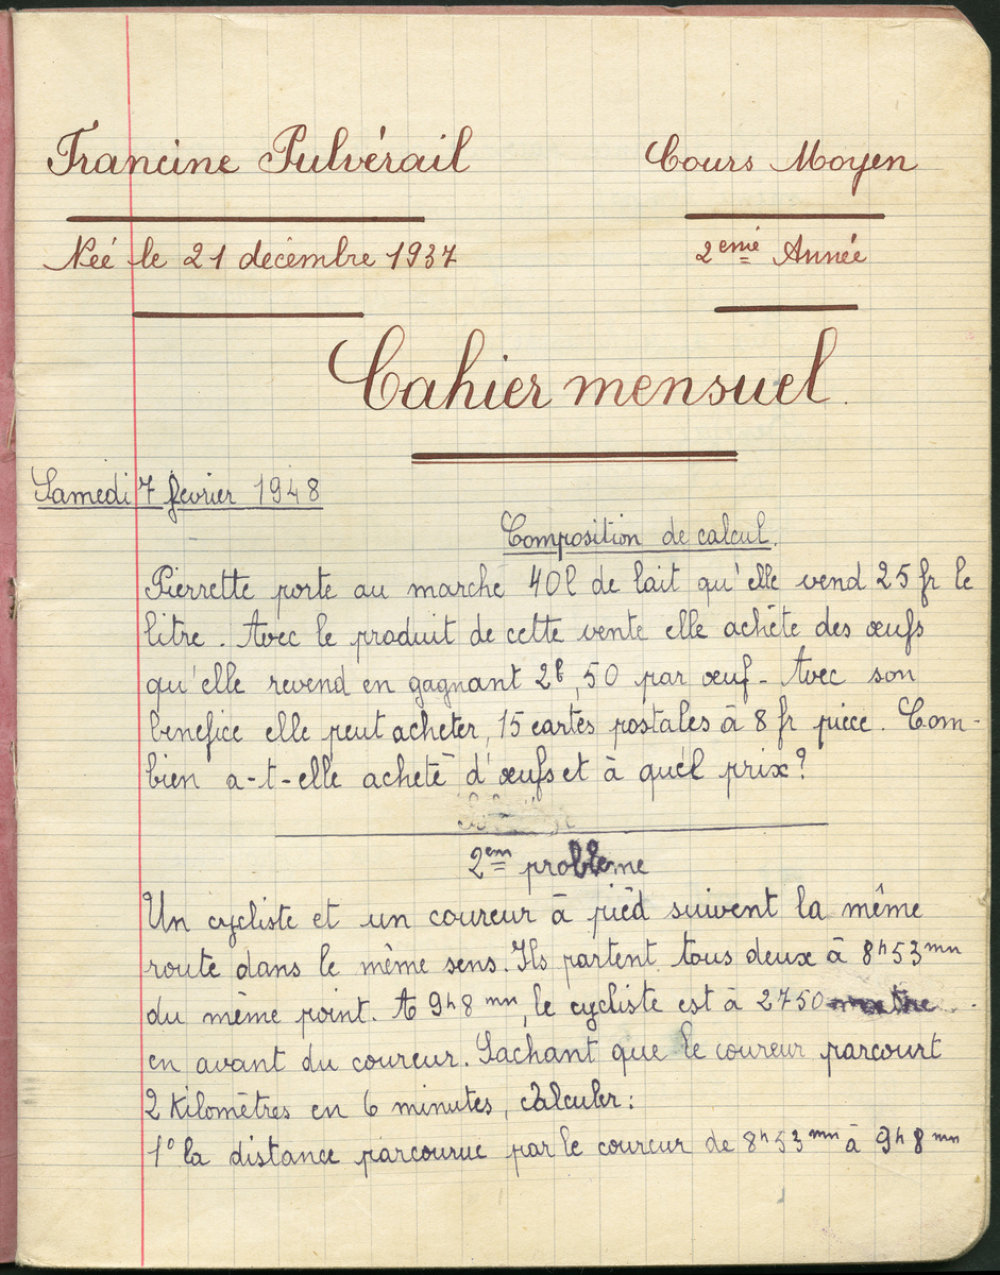 Francine Pulvérail
Cours Moyen
Née le 21 décembre 1937
2ème Année
Cahier mensuel.
Samedi 7 février 1948
Composition de calcul.
Pierrette porte au marché 40l de lait qu'elle vend 25 fr le
litre. Avec le produit de cette vente elle achète des œufs
qu'elle revend en gagnant 2f,50 par œuf - Avec son
bénéfice elle peut acheter, 15 cartes postales à 8 fr pièce. Com-
bien a-t-elle acheté d'œufs et à quel prix?
2em problème
Un cycliste et un coureur à pièd suivent la même
route dans le même sens. Ils partent tous deux à 8h53mn
du même point. A 9h8 mn, le cycliste est à 2750
en avant du coureur. Sachant que le coureur parcourt
2 Kilomètres en 6 minutes, calculer:
1° la distance parcourue par le coureur de 8h53mn à 9h8mn